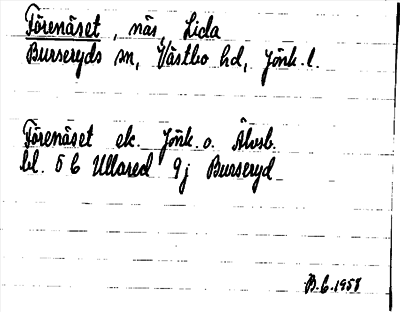 Förenäset, näs, Lida
Burseryds sn, Västbo hd, Jönk. l.
Förenäset ek. Jönk. o. Älvsb.
bl. 5 C Ullared 9j Burseryd
B.C. 1958